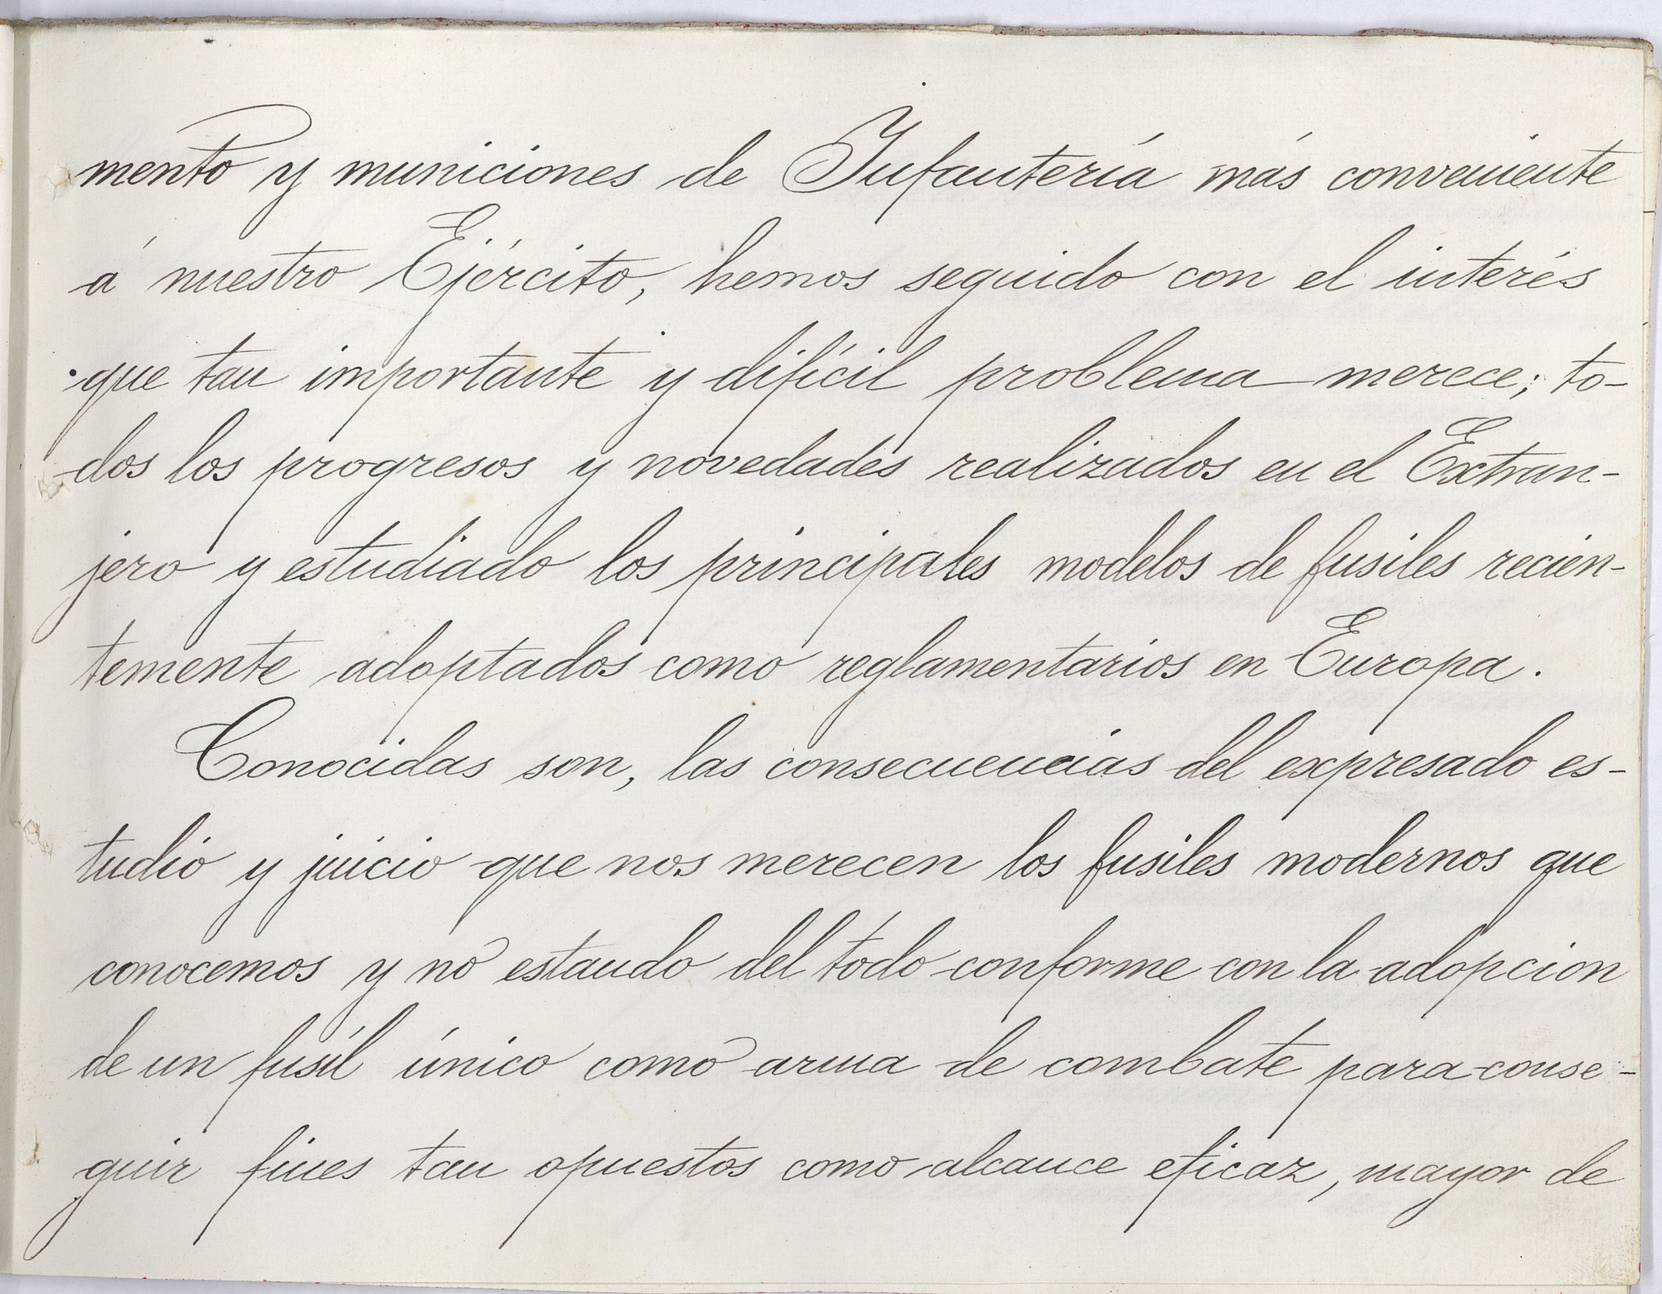 mento y municiones de Infantería más conveniente
á nuestro Ejército, hemos seguido con el interés
que tan importante y difícil problema merece; to-
dos los progresos y novedades realizados en el Extran-
jero y estudiado los principales modelos de fusiles recien-
temente adoptados como reglamentarios en Europa.
Conocidas son, las consecuencias del expresado es-
tudio y juicio que nos merecen los fusiles modernos que
conocemos y no estando del todo conforme con la adopcion
de un fusíl único como arma de combate para conse-
guir fines tan opuestos como alcance eficaz, mayor de